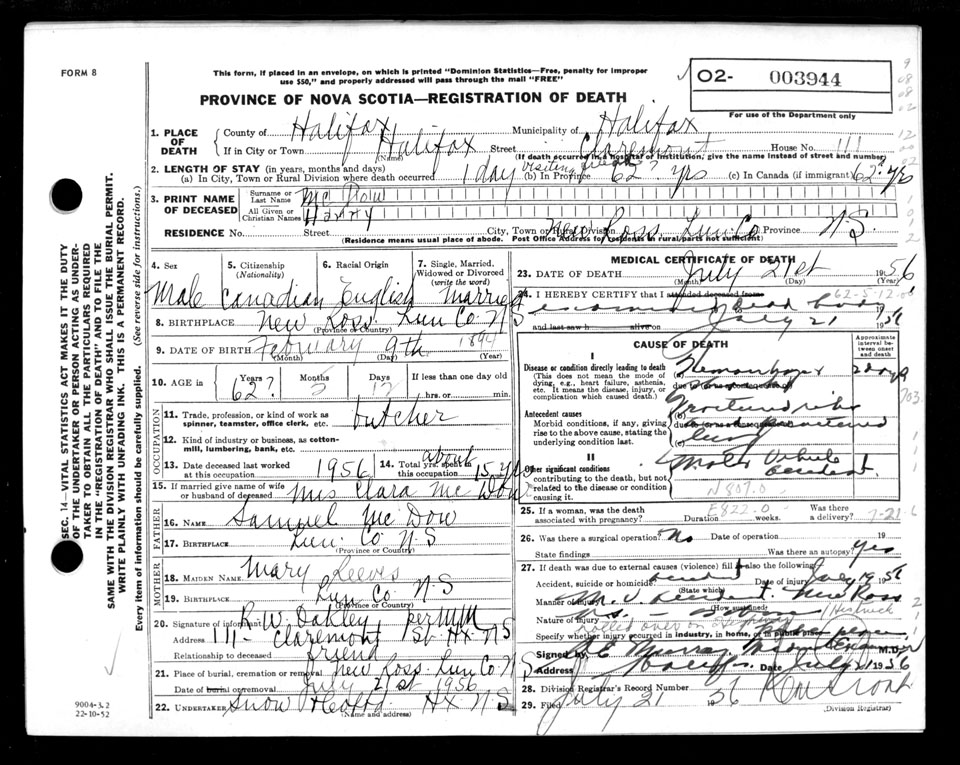 FORM 8
This form, if placed in an envelope, on which is printed "Dominion Statistics—Free, penalty for improper
use $50," and properly addressed will pass through the mail "FREE"
02- 003944
For use of the Department only
PROVINCE OF NOVA SCOTIA—REGISTRATION OF DEATH
1. PLACE OF DEATH
County of Halifax Municipality of Halifax
If in City or Town Halifax (Name) Street Claremont House No. 111
(If death occurred in a hospital or institution, give the name instead of street and number)
2. LENGTH OF STAY (in years, months and days)
(a) In City, Town or Rural Division where death occurred 1 day Visiting (b) In Province 62? yrs (c) In Canada (if immigrant) 62? yrs
3. PRINT NAME OF DECEASED
Surname or Last Name Mc Dow
All Given or Christian Names Harry
RESIDENCE No. Street City, Town or Rural Division New Ross Lun Co Province N.S.
(Residence means usual place of abode. Post Office Address for residents in rural parts not sufficient)
4. Sex Male
5. Citizenship (Nationality) Canadian
6. Racial Origin English
7. Single, Married, Widowed or Divorced (write the word) Married
8. BIRTHPLACE New Ross Lun Co N S
(Province or Country)
9. DATE OF BIRTH February 9th 1894
(Month) (Day) (Year)
10. AGE in Years? 62? Months 5 Days 12 If less than one day old
hrs. or min.
OCCUPATION
11. Trade, profession, or kind of work as spinner, teamster, office clerk, etc. butcher
12. Kind of industry or business, as cotton-mill, lumbering, bank, etc.
13. Date deceased last worked at this occupation 1956
14. Total yrs. spent in this occupation about 15 yrs
15. If married give name of wife or husband of deceased Mrs Clara Mc Dow
FATHER
16. NAME Samuel Mc Dow
17. BIRTHPLACE Lun Co N S
(Province or Country)
MOTHER
18. MAIDEN NAME Mary Reeves
19. BIRTHPLACE Lun Co N S
(Province or Country)
20. Signature of informant R W Oakley per MM
Address 111- Claremont St Hx N S
Relationship to deceased friend
21. Place of burial, cremation or removal New Ross Lun Co N S
Date of burial or removal July 21st 1956
22. UNDERTAKER Snow Hx N S
(Name and address)
MEDICAL CERTIFICATE OF DEATH
23. DATE OF DEATH July 21st 1956
(Month) (Day) (Year)
24. I HEREBY CERTIFY that I attended deceased from
examined dead body
and last saw h alive on July 21 1956
CAUSE OF DEATH
Approximate interval between onset and death
I
Disease or condition directly leading to death
(This does not mean the mode of dying, e.g., heart failure, asthenia, etc. It means the disease, injury, or complication which caused death.)
Hemorrhage 2 days
Antecedent causes
Morbid conditions, if any, giving rise to the above cause, stating the underlying condition last.
(b) Fractured ribs
(c) lung
II
Other significant conditions
contributing to the death, but not related to the disease or condition causing it.
Motor Vehicle Accident
N 807.0
E822.0
25. If a woman, was the death associated with pregnancy? Duration weeks. Was there a delivery?
26. Was there a surgical operation? No Date of operation 19
State findings Was there an autopsy? Yes
27. If death was due to external causes (violence) fill in also the following:
Accident, suicide or homicide? Accident (State which) Date of injury July 19 1956
Manner of injury M. V. Accident. New Ross
(How sustained)
Nature of injury
rolled over on
Specify whether injury occurred in industry, in home, or in public place
Signed by M.D.
Address Halifax Date July 21 1956
28. Division Registrar's Record Number
29. Filed July 21 1956
(Division Registrar)
SEC. 14—VITAL STATISTICS ACT MAKES IT THE DUTY
OF THE UNDERTAKER OR PERSON ACTING AS UNDER-
TAKER TO OBTAIN ALL THE PARTICULARS REQUIRED
IN THE "REGISTRATION OF DEATH" AND TO FILE THE
SAME WITH THE DIVISION REGISTRAR WHO SHALL ISSUE THE BURIAL PERMIT.
WRITE PLAINLY WITH UNFADING INK. THIS IS A PERMANENT RECORD.
Every item of information should be carefully supplied. (See reverse side for instructions.)
9004-3.2
22-10-52